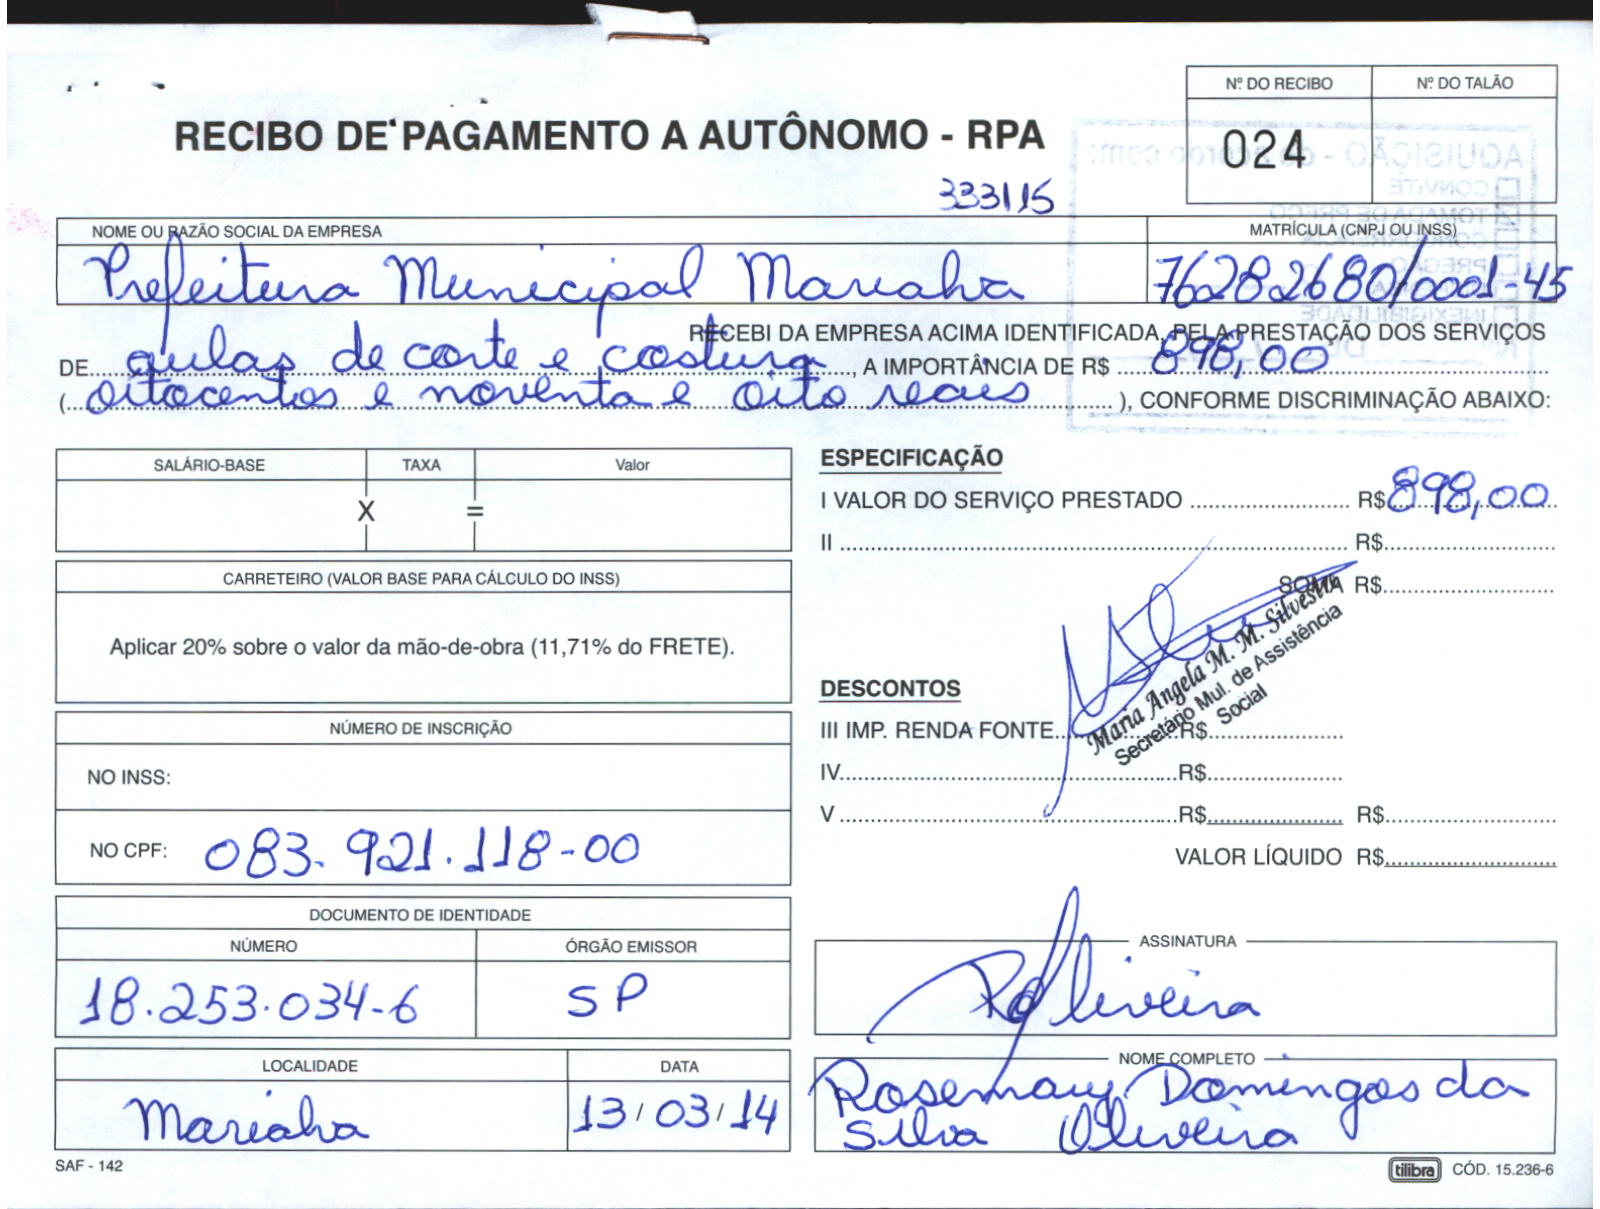 Nº DO RECIBO Nº DO TALÃO
024
RECIBO DE PAGAMENTO A AUTÔNOMO - RPA
333115
NOME OU RAZÃO SOCIAL DA EMPRESA MATRÍCULA (CNPJ OU INSS)
Prefeitura Municipal Marialva 76282680/0001-45
RECEBI DA EMPRESA ACIMA IDENTIFICADA, PELA PRESTAÇÃO DOS SERVIÇOS
DE aulas de corte e costura, A IMPORTÂNCIA DE R$ 898,00
(oitocentos e noventa e oito reais), CONFORME DISCRIMINAÇÃO ABAIXO:
SALÁRIO-BASE TAXA Valor
X =
CARRETEIRO (VALOR BASE PARA CÁLCULO DO INSS)
Aplicar 20% sobre o valor da mão-de-obra (11,71% do FRETE).
NÚMERO DE INSCRIÇÃO
NO INSS:
NO CPF: 083.921.118-00
DOCUMENTO DE IDENTIDADE
NÚMERO ÓRGÃO EMISSOR
18.253.034-6 SP
LOCALIDADE DATA
Marialva 13/03/14
SAF - 142
ESPECIFICAÇÃO
I VALOR DO SERVIÇO PRESTADO R$ 898,00
II R$
SOMA R$
Maria Angela M. M. Silvestri
Secretário Mul. de Assistência
Social
DESCONTOS
III IMP. RENDA FONTE R$
IV R$
V R$ R$
VALOR LÍQUIDO R$
ASSINATURA
ROliveira
NOME COMPLETO
Rosemary Domingos da
Silva Oliveira
tilibra CÓD. 15.236-6